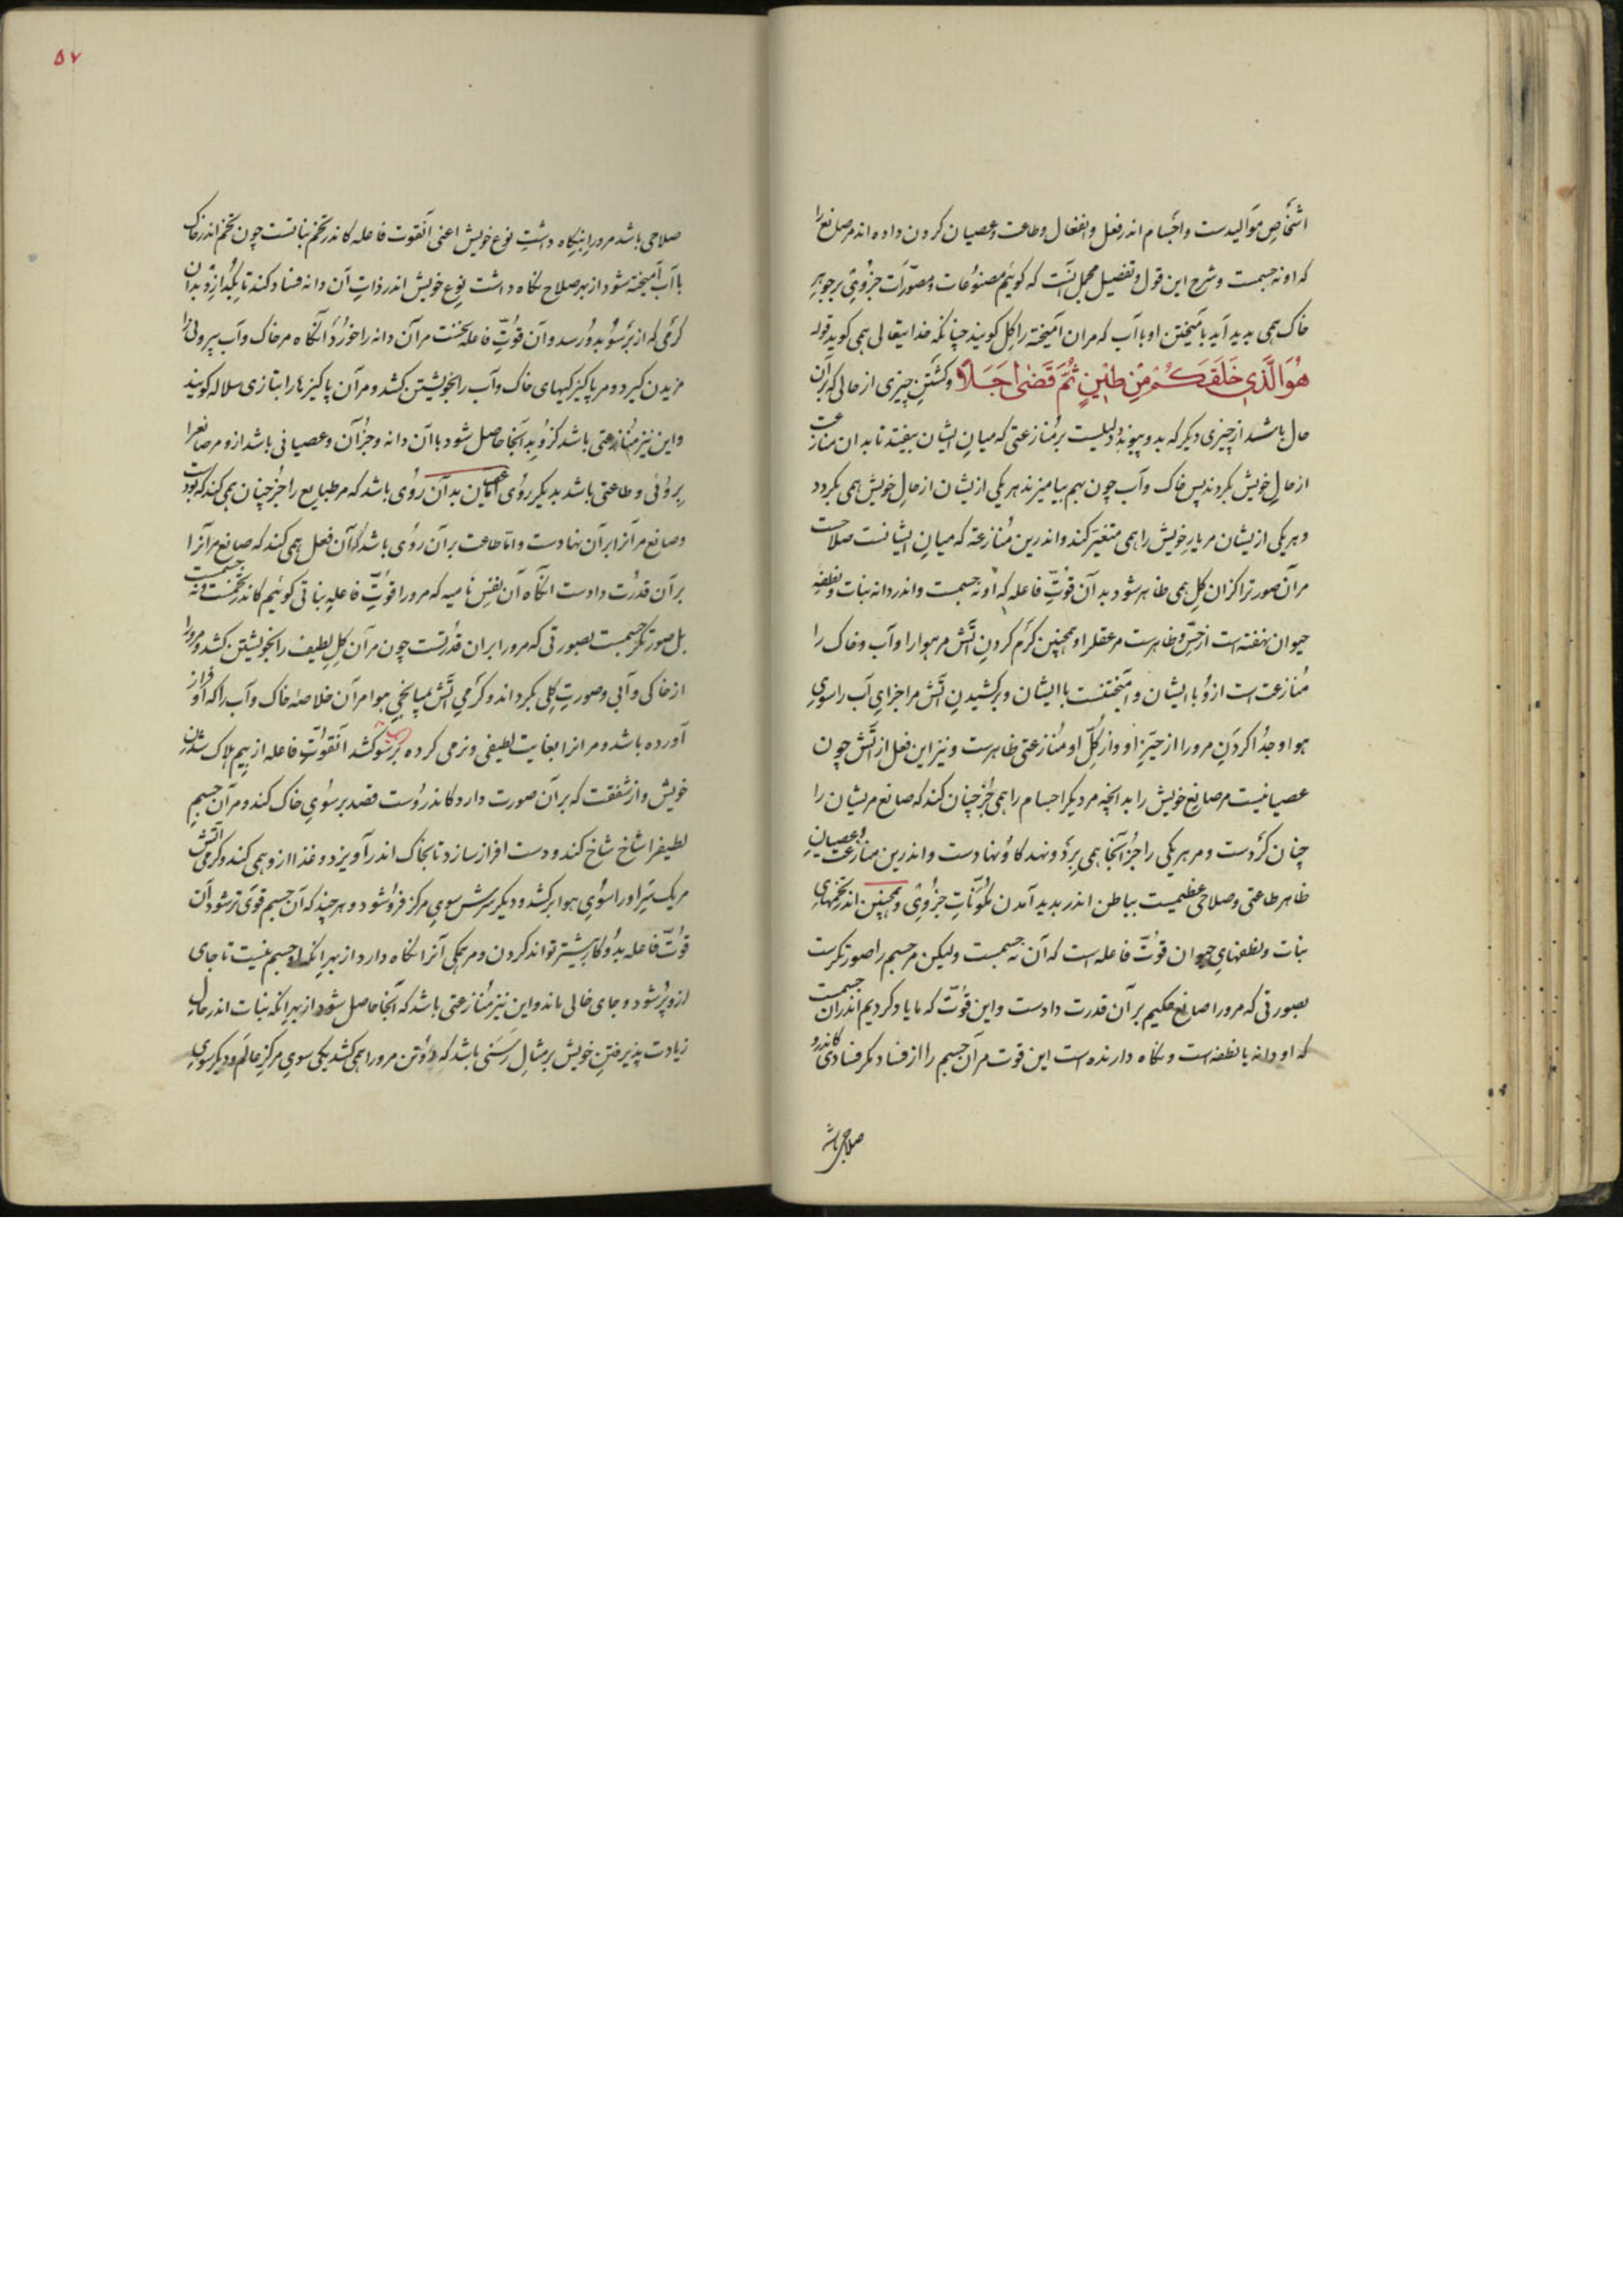 اشخاصِ موالیدست واجسام اندر فعل وانفعال وطاعت وعصیان کردن داده اند مر صانع را
که او نه جسمست وشرح این قول وتفصیل مجمل آنست که گوئیم مصنوعات ومصوّرات جزوی بر جوهر
خاک همی پدید آید بآمیختن او باآب که مران آمیخته را گل گویند چنانکه خدایتعالی همی گوید قوله
هُوَ الَّذِي خَلَقَكُمْ مِنْ طِينٍ ثُمَّ قَضَىٰ أَجَلًا وگشتنِ چیزی از حالی که بران
حال باشد از چیزی دیگر که بدو پیوندد دلیلست بر مُنازعتی که میانِ ایشان بیفتد تا بدان منازعت
از حالِ خویش بگردند پس خاک وآب چون بهم بیامیزند هر یکی از یشان از حالِ خویش همی بگردد
وهر یکی از یشان مر یارِ خویش را همی متغیّر کند واندرین مُنازعة که میانِ ایشانست صلاحست
مرآن صورترا کزان گل همی ظاهر شود بدآن قوّتِ فاعله که او نه جسمست واندر دانه نبات ونطفهٔ
حیوان نهفته است از حسّ وظاهرست مر عقلرا وهمچنین گرم کردنِ آتش مر هوارا وآب وخاک را
مُنازعت است از وُ باایشان وآمیختنست باایشان وبرکشیدنِ آتش مر اجزایِ آب را سویِ
هوا وجدُا کردنِ مرورا از حیّزِ او واز کلِّ او مُنازعتی ظاهرست ونیز این فعل از آتش چون
عصیانیست مر صانعِ خویش را بدانچه مر دیگر اجسام را همی جُز چنان کند که صانع مریشان را
چنان کردست ومر هر یکی را جُز آنجا همی بَرَد ونهد کاو نهادست واندرین منازعت وعصیانِ
ظاهر طاعتی وصلاحی عظیمست بباطن اندر پدید آمدن مُکوّناتِ جزوی وهمچنین اندر تخمهای
نبات ونطفهایِ حیوان قوّت فاعله است که آن نه جسمست ولیکن مر جسم را صورتگرست
بصورتی که مرورا صانعِ حکیم بر آن قدرت دادست واین قوّت که ما یاد کردیم اندران جسمست
که او دانه یا نطفه است ونگاه دارنده است این قوت مر آن جسم را از فساد مگر فسادی کاندرو
صلاحی باشد
۵۷
صلاحی باشد مرورا بنگاه داشتِ نوع خویش اعنی آنقوت فاعله کاندر تخم نباتست چون تخم اندر خاک
باآب آمیخته شود از بهر صلاح نگاه داشت نوعِ خویش اندر ذاتِ آن دانه فساد کند تا بگدازد بدان
گرمی که از برسُو بدو رسد وآن قوّتِ فاعله نخست مرآن دانه را خورَد آنگاه مر خاک وآب بیرونی را
مزیدن گیرد ومر پاکیزگیهای خاک وآب را بخویشتن کشد ومر آن پاکیزها را بتازی سلاله گویند
واین نیز مُنازعتی باشد کزو بدآنجا حاصل شود باآن دانه وجزآن وعصیانی باشد ازو مر صانع را
بروئی وطاعتی باشد بدیگر روُی امّا عصیان بدآن روُی باشد که مر طبایع را جز چنان همی کند که بودست
وصانع مر آنرا برآن نهادست وامّا طاعت برآن روُی باشد که آن فعل همی کند که صانع مر آنرا
برآن قدرت دادست آنگاه آن نفسِ نامیه که مرورا قوّتِ فاعلهٔ نباتی گوئیم کاندر تخمست ونه جسمست
بل صورتگر جسمست بصورتی که مرورا بران قدرتست چون مرآن گلِ لطیف را بخویشتن کشد ومرورا
از خاکی وآبی وصورتِ گلی بگرداند وگرمیِ آتش بمیانجیِ هوا مرآن خلاصهٔ خاک وآب را که او فراز
آورده باشد ومرانرا بغایت لطیفی ونرمی کرده برسو کشد آنقوّتِ فاعله از بیمِ هلاک شدنِ
خویش واز شفقت که برآن صورت دارد کاندروُست قصد بر سوُیِ خاک کند ومر آن جسمِ
لطیف را شاخ شاخ کند ودست افراز سازد تا بخاک اندر آویزد وغذا ازو همی کند وگرمیِ آتش
مر یک سَرِ اورا سوُیِ هوا برکشد ودیگر سرش سویِ مرکز فروُ شود وهر چند که آن جسم قوی تر شود آن
قوّت فاعله بدوُ کار بیشتر تواند کردن ومر همگی آنرا نگاه دارد از بهرِ آنکه او جسم نیست تا جای
ازو پُر شود وجای خالی ماند واین نیز مُنازعتی باشد که آنجا حاصل شود از بهرِ آنکه نبات اندر حالِ
زیادت پذیرفتنِ خویش بر مثالِ رَسَنی باشد که دوُ تن مرورا همی کشد یکی سویِ مرکزِ عالَم ودیگر سویِ